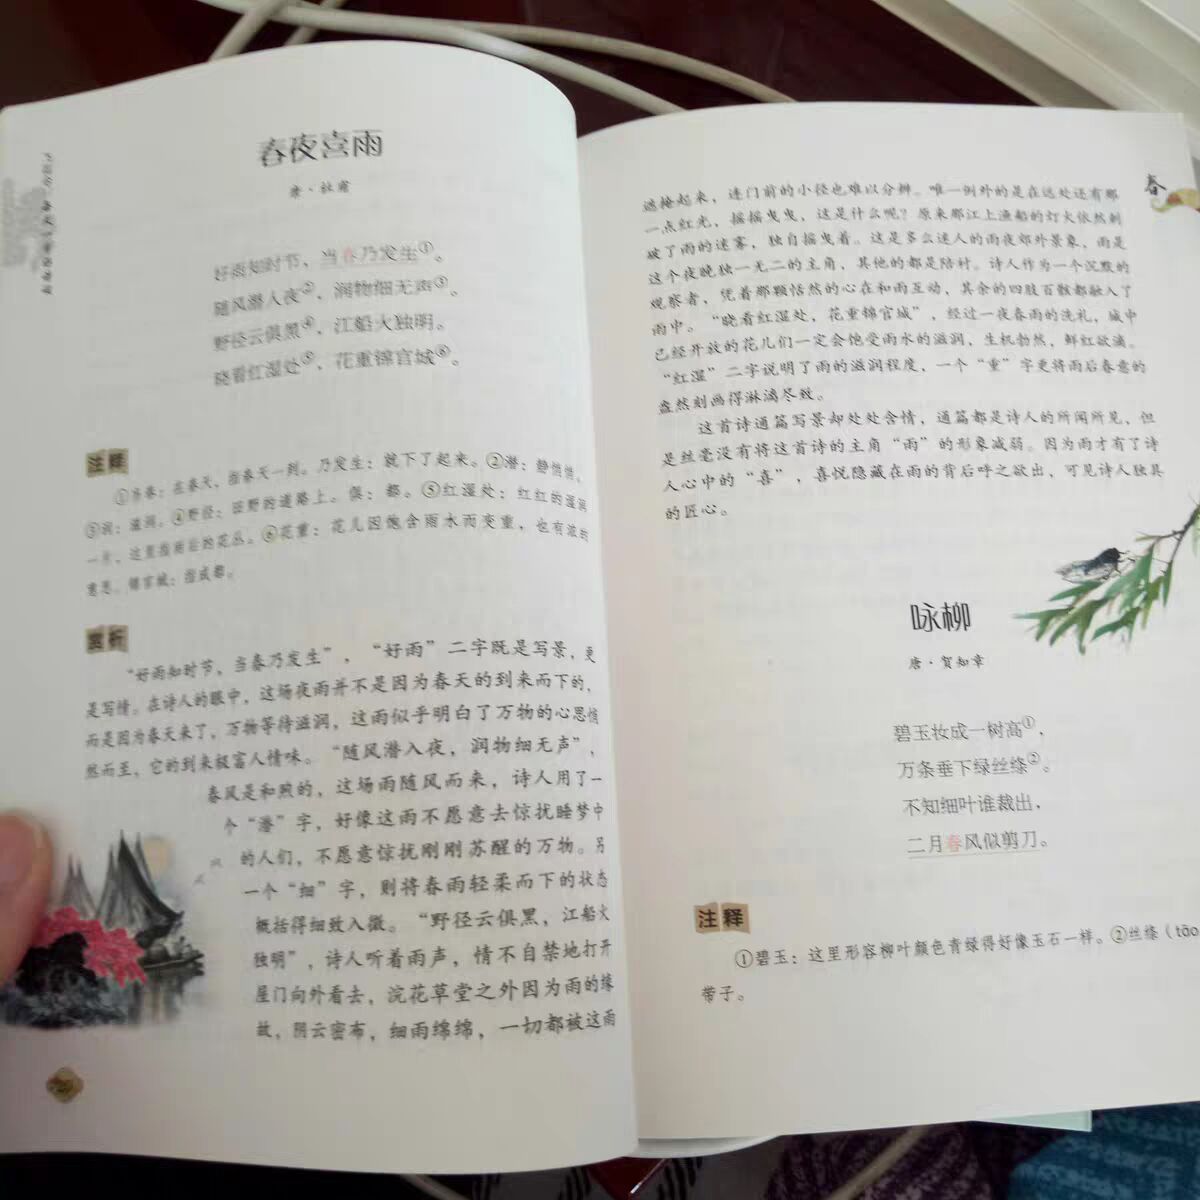 春夜喜雨
唐·杜甫
好雨知时节，当春乃发生①。
随风潜入夜②，润物细无声③。
野径云俱黑④，江船火独明。
晓看红湿处⑤，花重锦官城⑥。
注释
①当春：在春天，指春天一到。乃发生：就下了起来。②潜：静悄悄。
③润：滋润。④野径：田野的道路上。俱：都。⑤红湿处：红红的湿润
一片，这里指雨后的花丛。⑥花重：花儿因饱含雨水而变重，也有浓的
意思。锦官城：指成都。
赏析
“好雨知时节，当春乃发生”，“好雨”二字既是写景，更
是写情。在诗人的眼中，这场夜雨并不是因为春天的到来而下的，
而是因为春天来了，万物等待滋润，这雨似乎明白了万物的心思悄
然而至，它的到来极富人情味。“随风潜入夜，润物细无声”，
春风是和煦的，这场雨随风而来，诗人用了一
个“潜”字，好像这雨不愿意去惊扰睡梦中
的人们，不愿意惊扰刚刚苏醒的万物。另
一个“细”字，则将春雨轻柔而下的状态
概括得细致入微。“野径云俱黑，江船火
独明”，诗人听着雨声，情不自禁地打开
屋门向外看去，浣花草堂之外因为雨的缘
故，阴云密布，细雨绵绵，一切都被这雨
春
遮掩起来，连门前的小径也难以分辨。唯一例外的是在远处还有那
一点红光，摇摇曳曳，这是什么呢？原来那江上渔船的灯火依然刺
破了雨的迷雾，独自摇曳着。这是多么迷人的雨夜郊外景象，雨是
这个夜晚独一无二的主角，其他的都是陪衬。诗人作为一个沉默的
观察者，凭着那颗恬然的心在和雨互动，其余的四肢百骸都融入了
雨中。“晓看红湿处，花重锦官城”，经过一夜春雨的洗礼，城中
已经开放的花儿们一定会饱受雨水的滋润，生机勃然，鲜红欲滴。
“红湿”二字说明了雨的滋润程度，一个“重”字更将雨后春意的
盎然刻画得淋漓尽致。
这首诗通篇写景却处处含情，通篇都是诗人的所闻所见，但
是丝毫没有将这首诗的主角“雨”的形象减弱。因为雨才有了诗
人心中的“喜”，喜悦隐藏在雨的背后呼之欲出，可见诗人独具
的匠心。
咏柳
唐·贺知章
碧玉妆成一树高①，
万条垂下绿丝绦②。
不知细叶谁裁出，
二月春风似剪刀。
注释
①碧玉：这里形容柳叶颜色青绿得好像玉石一样。②丝绦（tāo
带子。